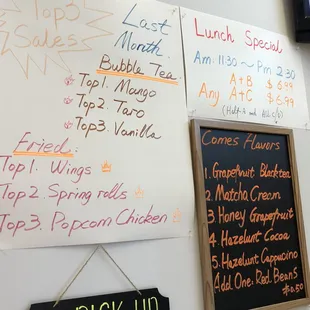 Top3
Sales
Last
Month.
Bubble Tea
Top1. Mango
Top2. Taro
Top3. Vanilla
Fried:
Top1. Wings
Top2. Spring rolls
Top3. Popcorn Chicken
Lunch Special
Am: 11:30 ~ Pm 2:30
A+B $6.99
Any A+C $6.99
Comes Flavors
1. Grapefruit Black tea
2. Matcha Cream
3. Honey Grapefruit
4. Hazelunt Cocoa
5. Hazelunt Cappucino
Add One: Red Beans
$0.50
PICK UP